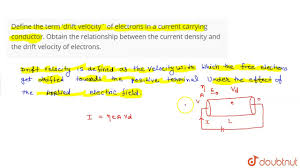 Define the term 'drift velocity" of electrons in a current carrying
conductor. Obtain the relationship between the current density and
the drift velocity of electrons.
Drift velocity is defined as the velocity with which the free electrons
get drifted towards the positive terminal under the effect
of the applied electric field.
I = neAVd
n
A
E
Vd
e
V
I
L
I
doubtnut